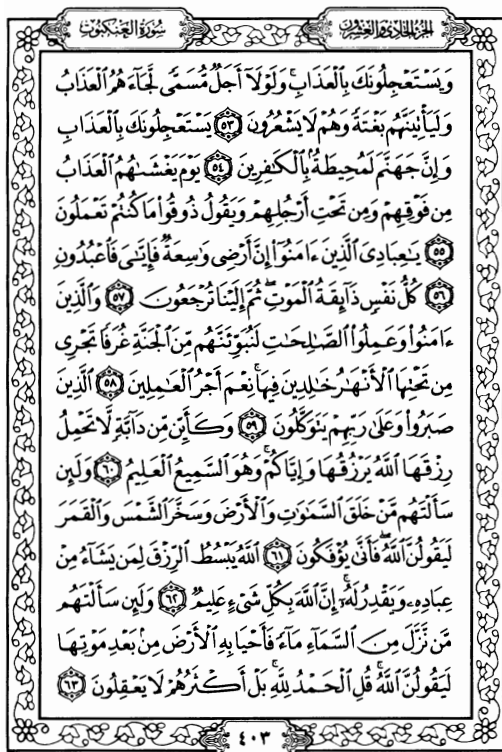 الجزء الحادي والعشرون سورة العنكبوت
وَيَسْتَعْجِلُونَكَ بِالْعَذَابِ ۚ وَلَوْلَآ أَجَلٌ مُّسَمًّى لَّجَآءَهُمُ الْعَذَابُ
وَلَيَأْتِيَنَّهُم بَغْتَةً وَهُمْ لَا يَشْعُرُونَ ٥٣ يَسْتَعْجِلُونَكَ بِالْعَذَابِ
وَإِنَّ جَهَنَّمَ لَمُحِيطَةٌۢ بِالْكَٰفِرِينَ ٥٤ يَوْمَ يَغْشَىٰهُمُ الْعَذَابُ
مِن فَوْقِهِمْ وَمِن تَحْتِ أَرْجُلِهِمْ وَيَقُولُ ذُوقُوا۟ مَا كُنتُمْ تَعْمَلُونَ
٥٥ يَٰعِبَادِىَ الَّذِينَ ءَامَنُوٓا۟ إِنَّ أَرْضِى وَٰسِعَةٌ فَإِيَّٰىَ فَاعْبُدُونِ
٥٦ كُلُّ نَفْسٍ ذَآئِقَةُ الْمَوْتِ ۖ ثُمَّ إِلَيْنَا تُرْجَعُونَ ٥٧ وَالَّذِينَ
ءَامَنُوا۟ وَعَمِلُوا۟ الصَّٰلِحَٰتِ لَنُبَوِّئَنَّهُم مِّنَ الْجَنَّةِ غُرَفًا تَجْرِى
مِن تَحْتِهَا الْأَنْهَٰرُ خَٰلِدِينَ فِيهَا ۚ نِعْمَ أَجْرُ الْعَٰمِلِينَ ٥٨ الَّذِينَ
صَبَرُوا۟ وَعَلَىٰ رَبِّهِمْ يَتَوَكَّلُونَ ٥٩ وَكَأَيِّن مِّن دَآبَّةٍ لَّا تَحْمِلُ
رِزْقَهَا اللَّهُ يَرْزُقُهَا وَإِيَّاكُمْ ۚ وَهُوَ السَّمِيعُ الْعَلِيمُ ٦٠ وَلَئِن
سَأَلْتَهُم مَّنْ خَلَقَ السَّمَٰوَٰتِ وَالْأَرْضَ وَسَخَّرَ الشَّمْسَ وَالْقَمَرَ
لَيَقُولُنَّ اللَّهُ ۖ فَأَنَّىٰ يُؤْفَكُونَ ٦١ اللَّهُ يَبْسُطُ الرِّزْقَ لِمَن يَشَآءُ مِنْ
عِبَادِهِۦ وَيَقْدِرُ لَهُۥٓ ۚ إِنَّ اللَّهَ بِكُلِّ شَىْءٍ عَلِيمٌ ٦٢ وَلَئِن سَأَلْتَهُم
مَّن نَّزَّلَ مِنَ السَّمَآءِ مَآءً فَأَحْيَا بِهِ الْأَرْضَ مِنۢ بَعْدِ مَوْتِهَا
لَيَقُولُنَّ اللَّهُ ۚ قُلِ الْحَمْدُ لِلَّهِ ۚ بَلْ أَكْثَرُهُمْ لَا يَعْقِلُونَ ٦٣
٤٠٣